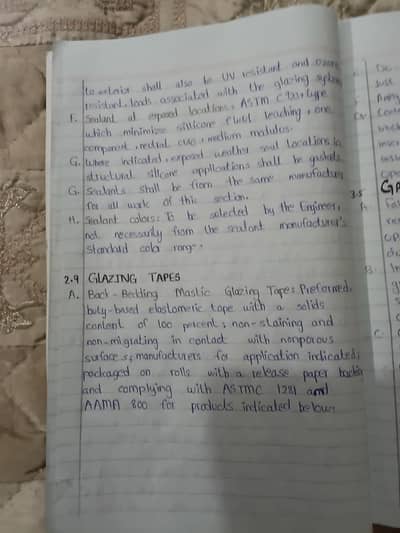 to exterior shall also be UV resistant and ozone
resistant, loads associated with the glazing system
F. Sealant at exposed locations: ASTM C920, type
which minimize silicone fluid leaching, one
component, neutral cure, medium modulus.
G. Where indicated, exposed weather seal locations in
structural silicone applications shall be gaskets.
G. Sealants shall be from the same manufacturer
for all work of this section.
H. Sealant colors: To be selected by the Engineer,
not necessarily from the sealant manufacturer's
standard color range.
2.9 GLAZING TAPES
A. Back-Bedding Mastic Glazing Tapes: Preformed,
butyl-based elastomeric tape with a solids
content of 100 percent; non-staining and
non-migrating in contact with nonporous
surfaces; manufacturers for application indicated;
packaged on rolls with a release paper backin
and complying with ASTMC 1281 and
AAMA 800 for products indicated below:
3.5